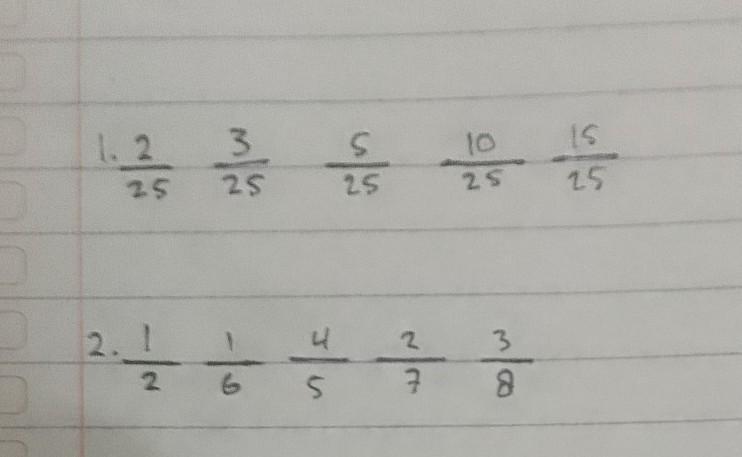 1. 2/25 3/25 5/25 10/25 15/25
2. 1/2 1/6 4/5 2/7 3/8